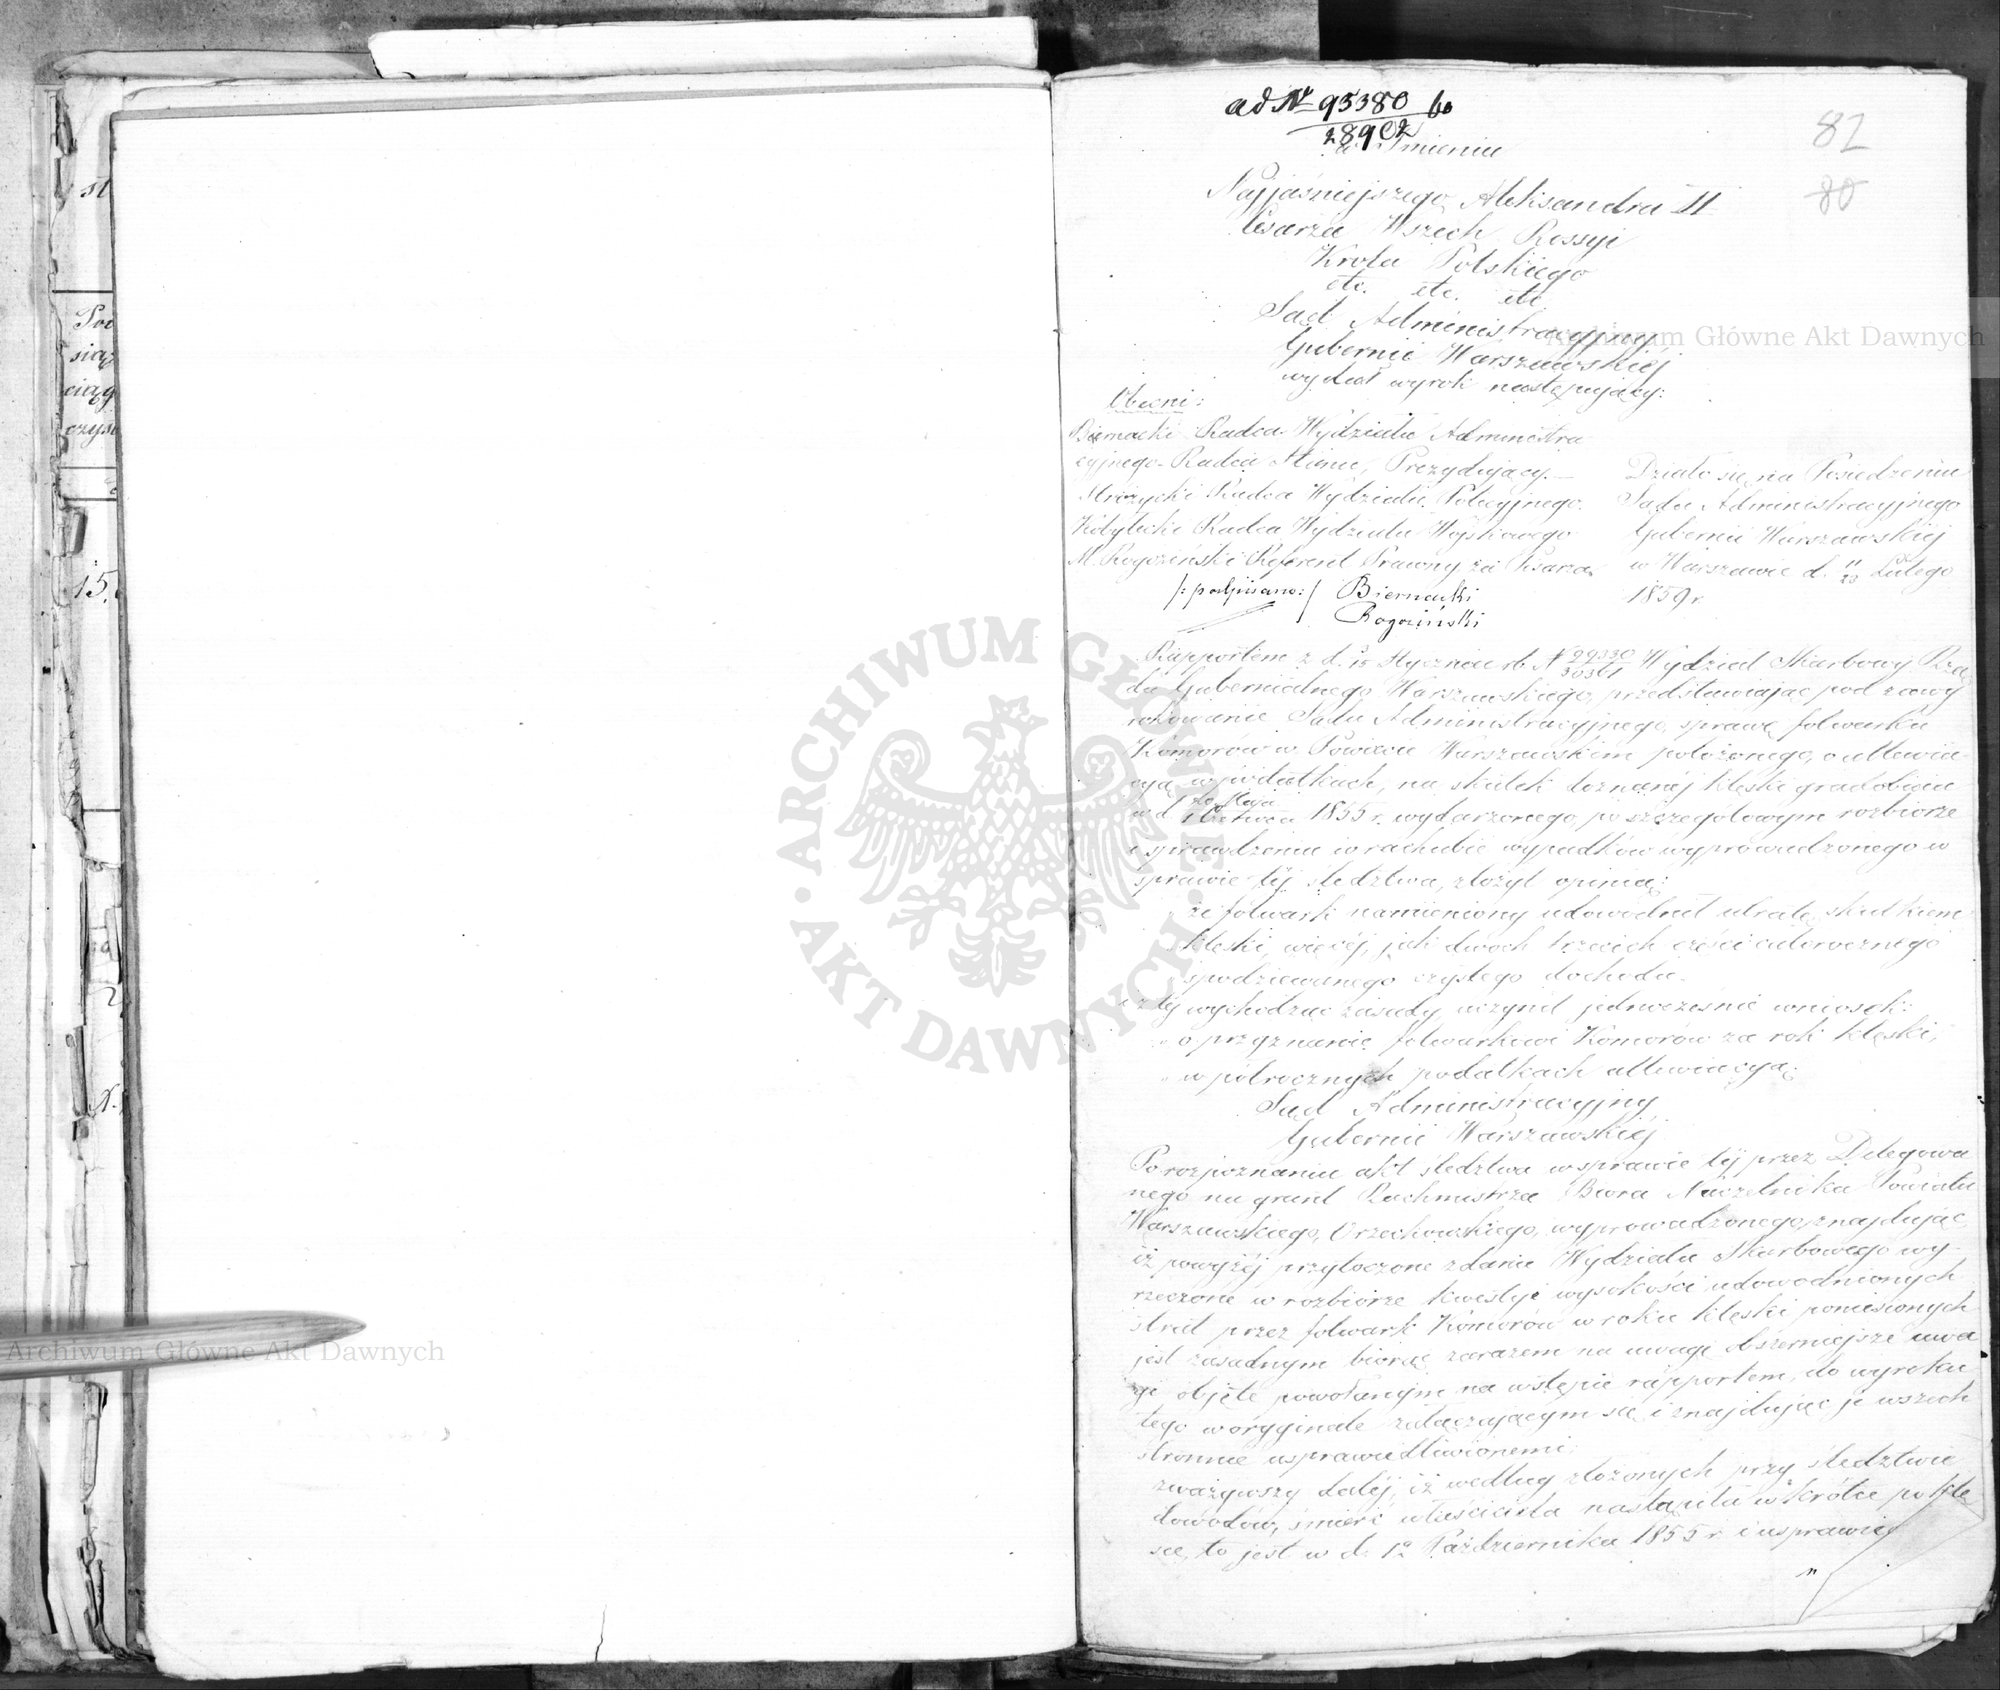 ad Nr 95380/28902 bo
82
80
w Imieniu
Najjaśniejszego Aleksandra II
Cesarza Wszech Rossyi
Króla Polskiego
etc. etc. etc
Sąd Administracyjny
Gubernii Warszawskiéj
wydał wyrok następujący:
Obecni:
Biernacki Radca Wydziału Administra
cyjnego Radca Stanu, Prezydujący.—
Radca Wydziału Policyjnego.
Kobylecki Radca Wydziału Wojskowego
M. Rogoziński Referent Prawny za Pisarza
/: podpisano: / Biernacki
Rogoziński
Działo się na Posiedzeniu
Sądu Administracyjnego
Gubernii Warszawskiéj
w Warszawie d. 11/23 Lutego
1859 r.
Rapportem z d. Stycznia rb. N Wydział Skarbowy Rzą
du Gubernialnego Warszawskiego, przedstawiając pod zawy
rokowanie Sądu Administracyjnego, sprawę folwarku
Komorów w Powiecie Warszawskim położonego, o allewia
cyą w podatkach, na skutek doznanéj klęski gradobicia
w d. 20 Maja/1 Czerwca 1855 r. wydarzonego, po szczegółowym rozbiorze
i sprawdzeniu w rachubie wypadków wyprowadzonego w
sprawie téj śledztwa, złożył opinią:
że folwark namieniony udowodnił utratę skutkiem
klęski, więcéj, jak dwóch trzecich części całorocznego
spodziewanego czystego dochodu.
i z téj wychodząc zasady uczynił jednocześnie wniosek:
o przyznanie folwarkowi Komorów za rok klęski,
w półrocznych podatkach allewiacyą:
Sąd Administracyjny
Gubernii Warszawskiéj
Po rozpoznaniu akt śledztwa w sprawie téj przez Delegowa
nego na grunt Rachmistrza Biura Naczelnika Powiatu
Warszawskiego, Orzechowskiego, wyprowadzonego, znajdując,
iż powyżéj przytoczone zdanie Wydziału Skarbowego wy-
rzeczone w rozbiorze kwestyi wysokości udowodnionych
strat przez folwark Komorów w roku klęski poniesionych
jest zasadnym biorąc zarazem na uwagę obszerniejsze uwa
gi objęte powołanym na wstępie rapportem, do wyroku
tego w oryginale załączającym się i znajdując je wszech
stronnie usprawiedliwionemi;
zważywszy daléj, iż według złożonych przy śledztwie
dowodów, śmierć właściciela nastąpiła wkrótce po klę
sce, to jest w d. 12 Października 1855 r. i usprawie
Archiwum Główne Akt Dawnych
Archiwum Główne Akt Dawnych
ARCHIWUM GŁÓWNE · AKT DAWNYCH ·